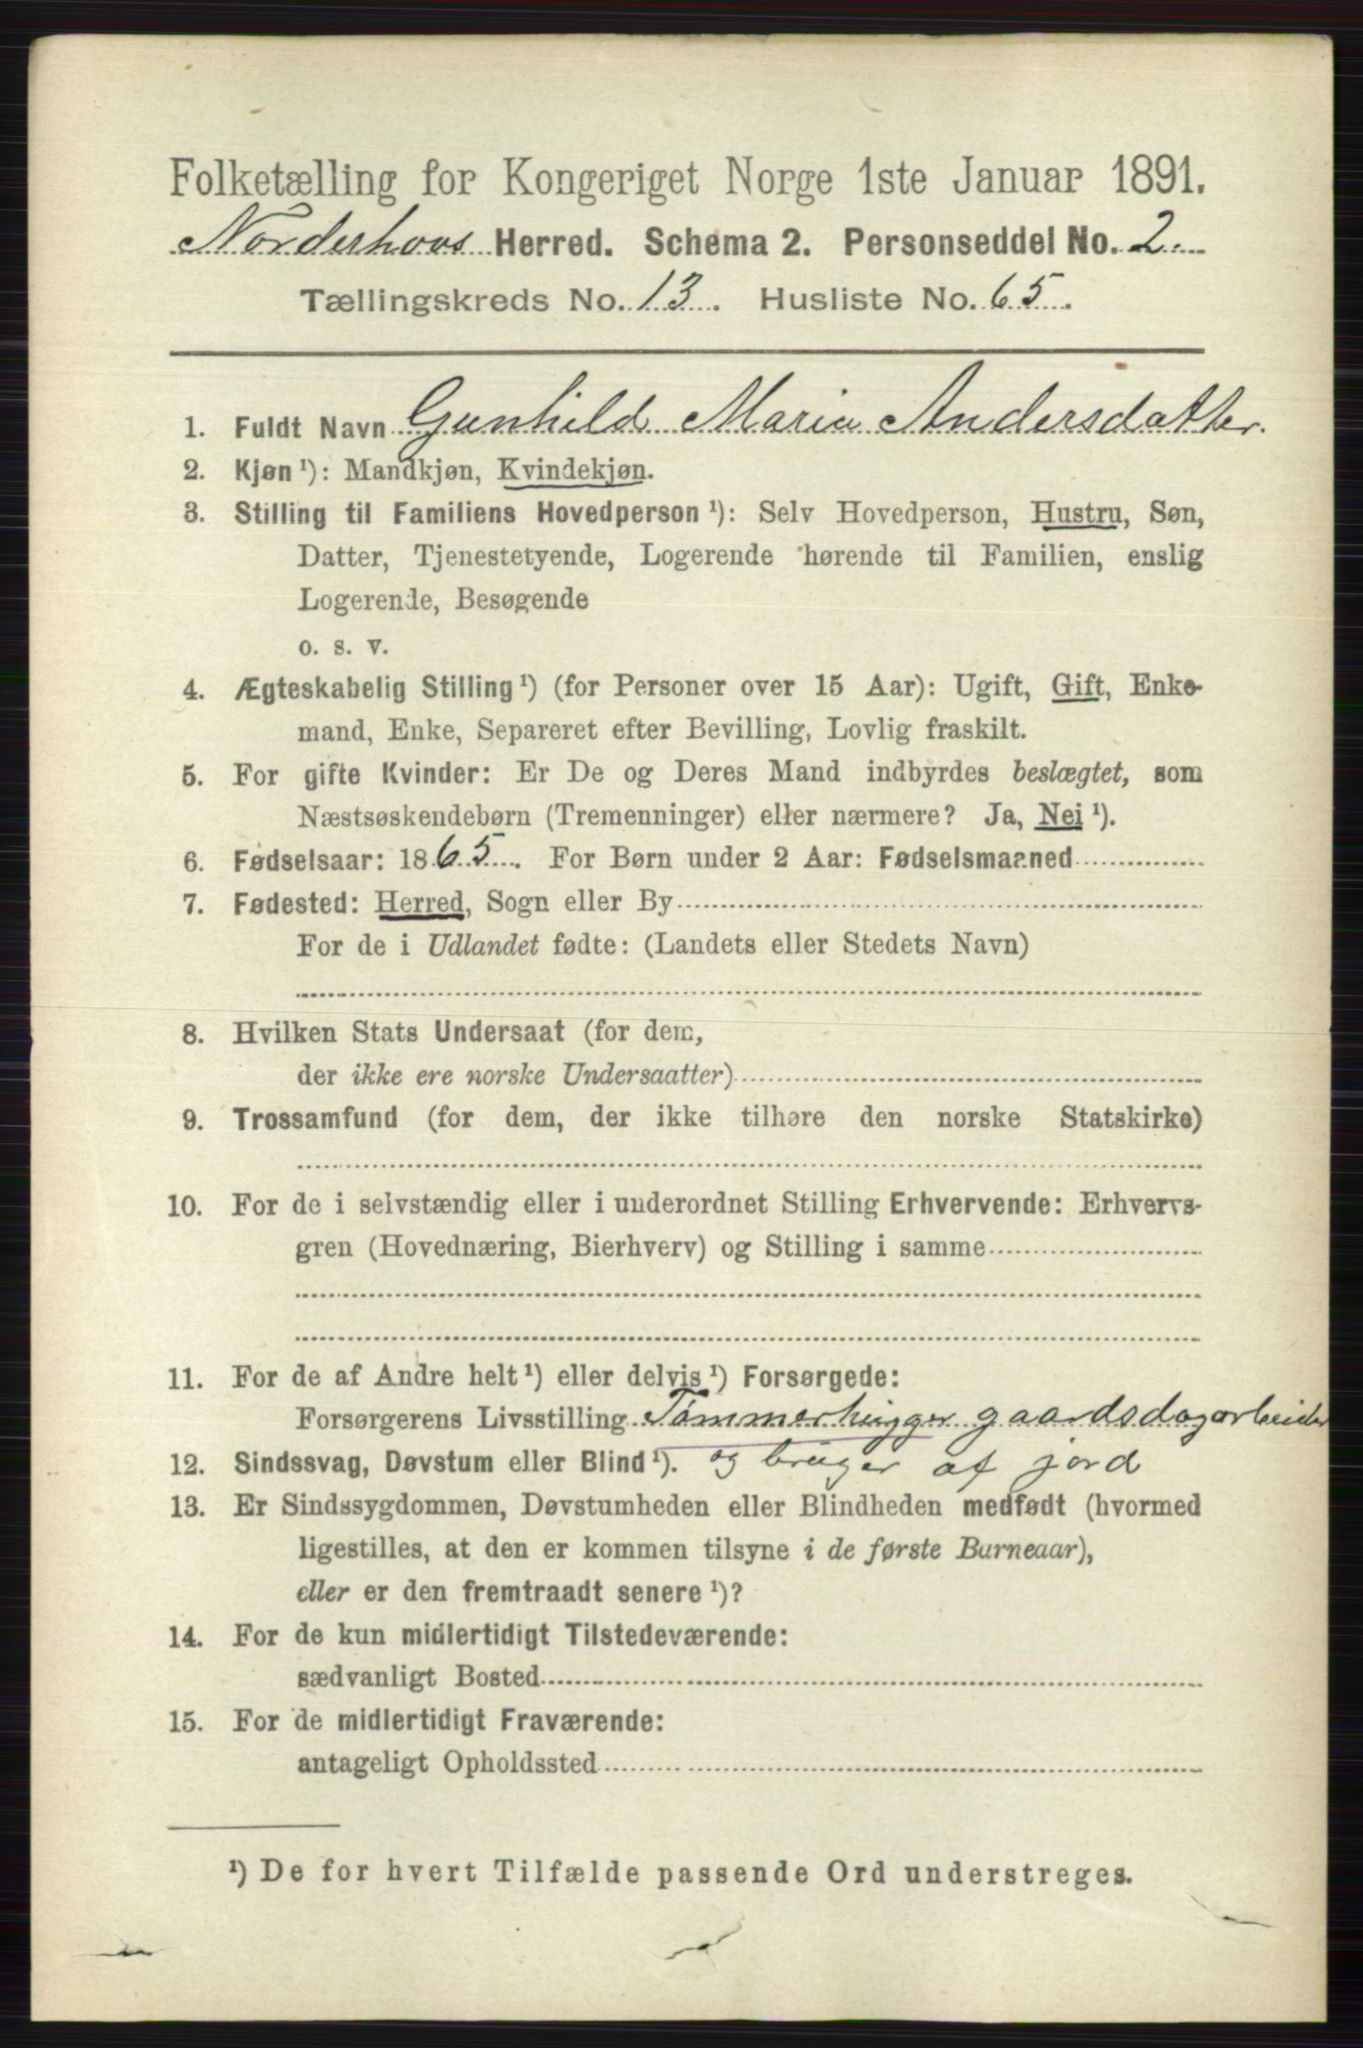 Folketælling for Kongeriget Norge 1ste Januar 1891.
Norderhovs Herred. Schema 2. Personseddel No. 2.
Tællingskreds No. 13. Husliste No. 65.
1. Fuldt Navn Gunhild Maria Andersdatter.
2. Kjøn¹): Mandkjøn, Kvindekjøn.
3. Stilling til Familiens Hovedperson¹): Selv Hovedperson, Hustru, Søn,
Datter, Tjenestetyende, Logerende hørende til Familien, enslig
Logerende, Besøgende
o. s. v.
4. Ægteskabelig Stilling¹) (for Personer over 15 Aar): Ugift, Gift, Enke-
mand, Enke, Separeret efter Bevilling, Lovlig fraskilt.
5. For gifte Kvinder: Er De og Deres Mand indbyrdes beslægtet, som
Næstsøskendebørn (Tremenninger) eller nærmere? Ja, Nei¹).
6. Fødselsaar: 1865. For Børn under 2 Aar: Fødselsmaaned
7. Fødested: Herred, Sogn eller By
For de i Udlandet fødte: (Landets eller Stedets Navn)
8. Hvilken Stats Undersaat (for dem,
der ikke ere norske Undersaatter)
9. Trossamfund (for dem, der ikke tilhøre den norske Statskirke)
10. For de i selvstændig eller i underordnet Stilling Erhvervende: Erhvervs-
gren (Hovednæring, Bierhverv) og Stilling i samme
11. For de af Andre helt¹) eller delvis¹) Forsørgede:
Forsørgerens Livsstilling Tømmerhugger gaardsdagarbeider
12. Sindssvag, Døvstum eller Blind¹). og bruger af jord
13. Er Sindssygdommen, Døvstumheden eller Blindheden medfødt (hvormed
ligestilles, at den er kommen tilsyne i de første Barneaar),
eller er den fremtraadt senere¹)?
14. For de kun midlertidigt Tilstedeværende:
sædvanligt Bosted
15. For de midlertidigt Fraværende:
antageligt Opholdssted
¹) De for hvert Tilfælde passende Ord understreges.